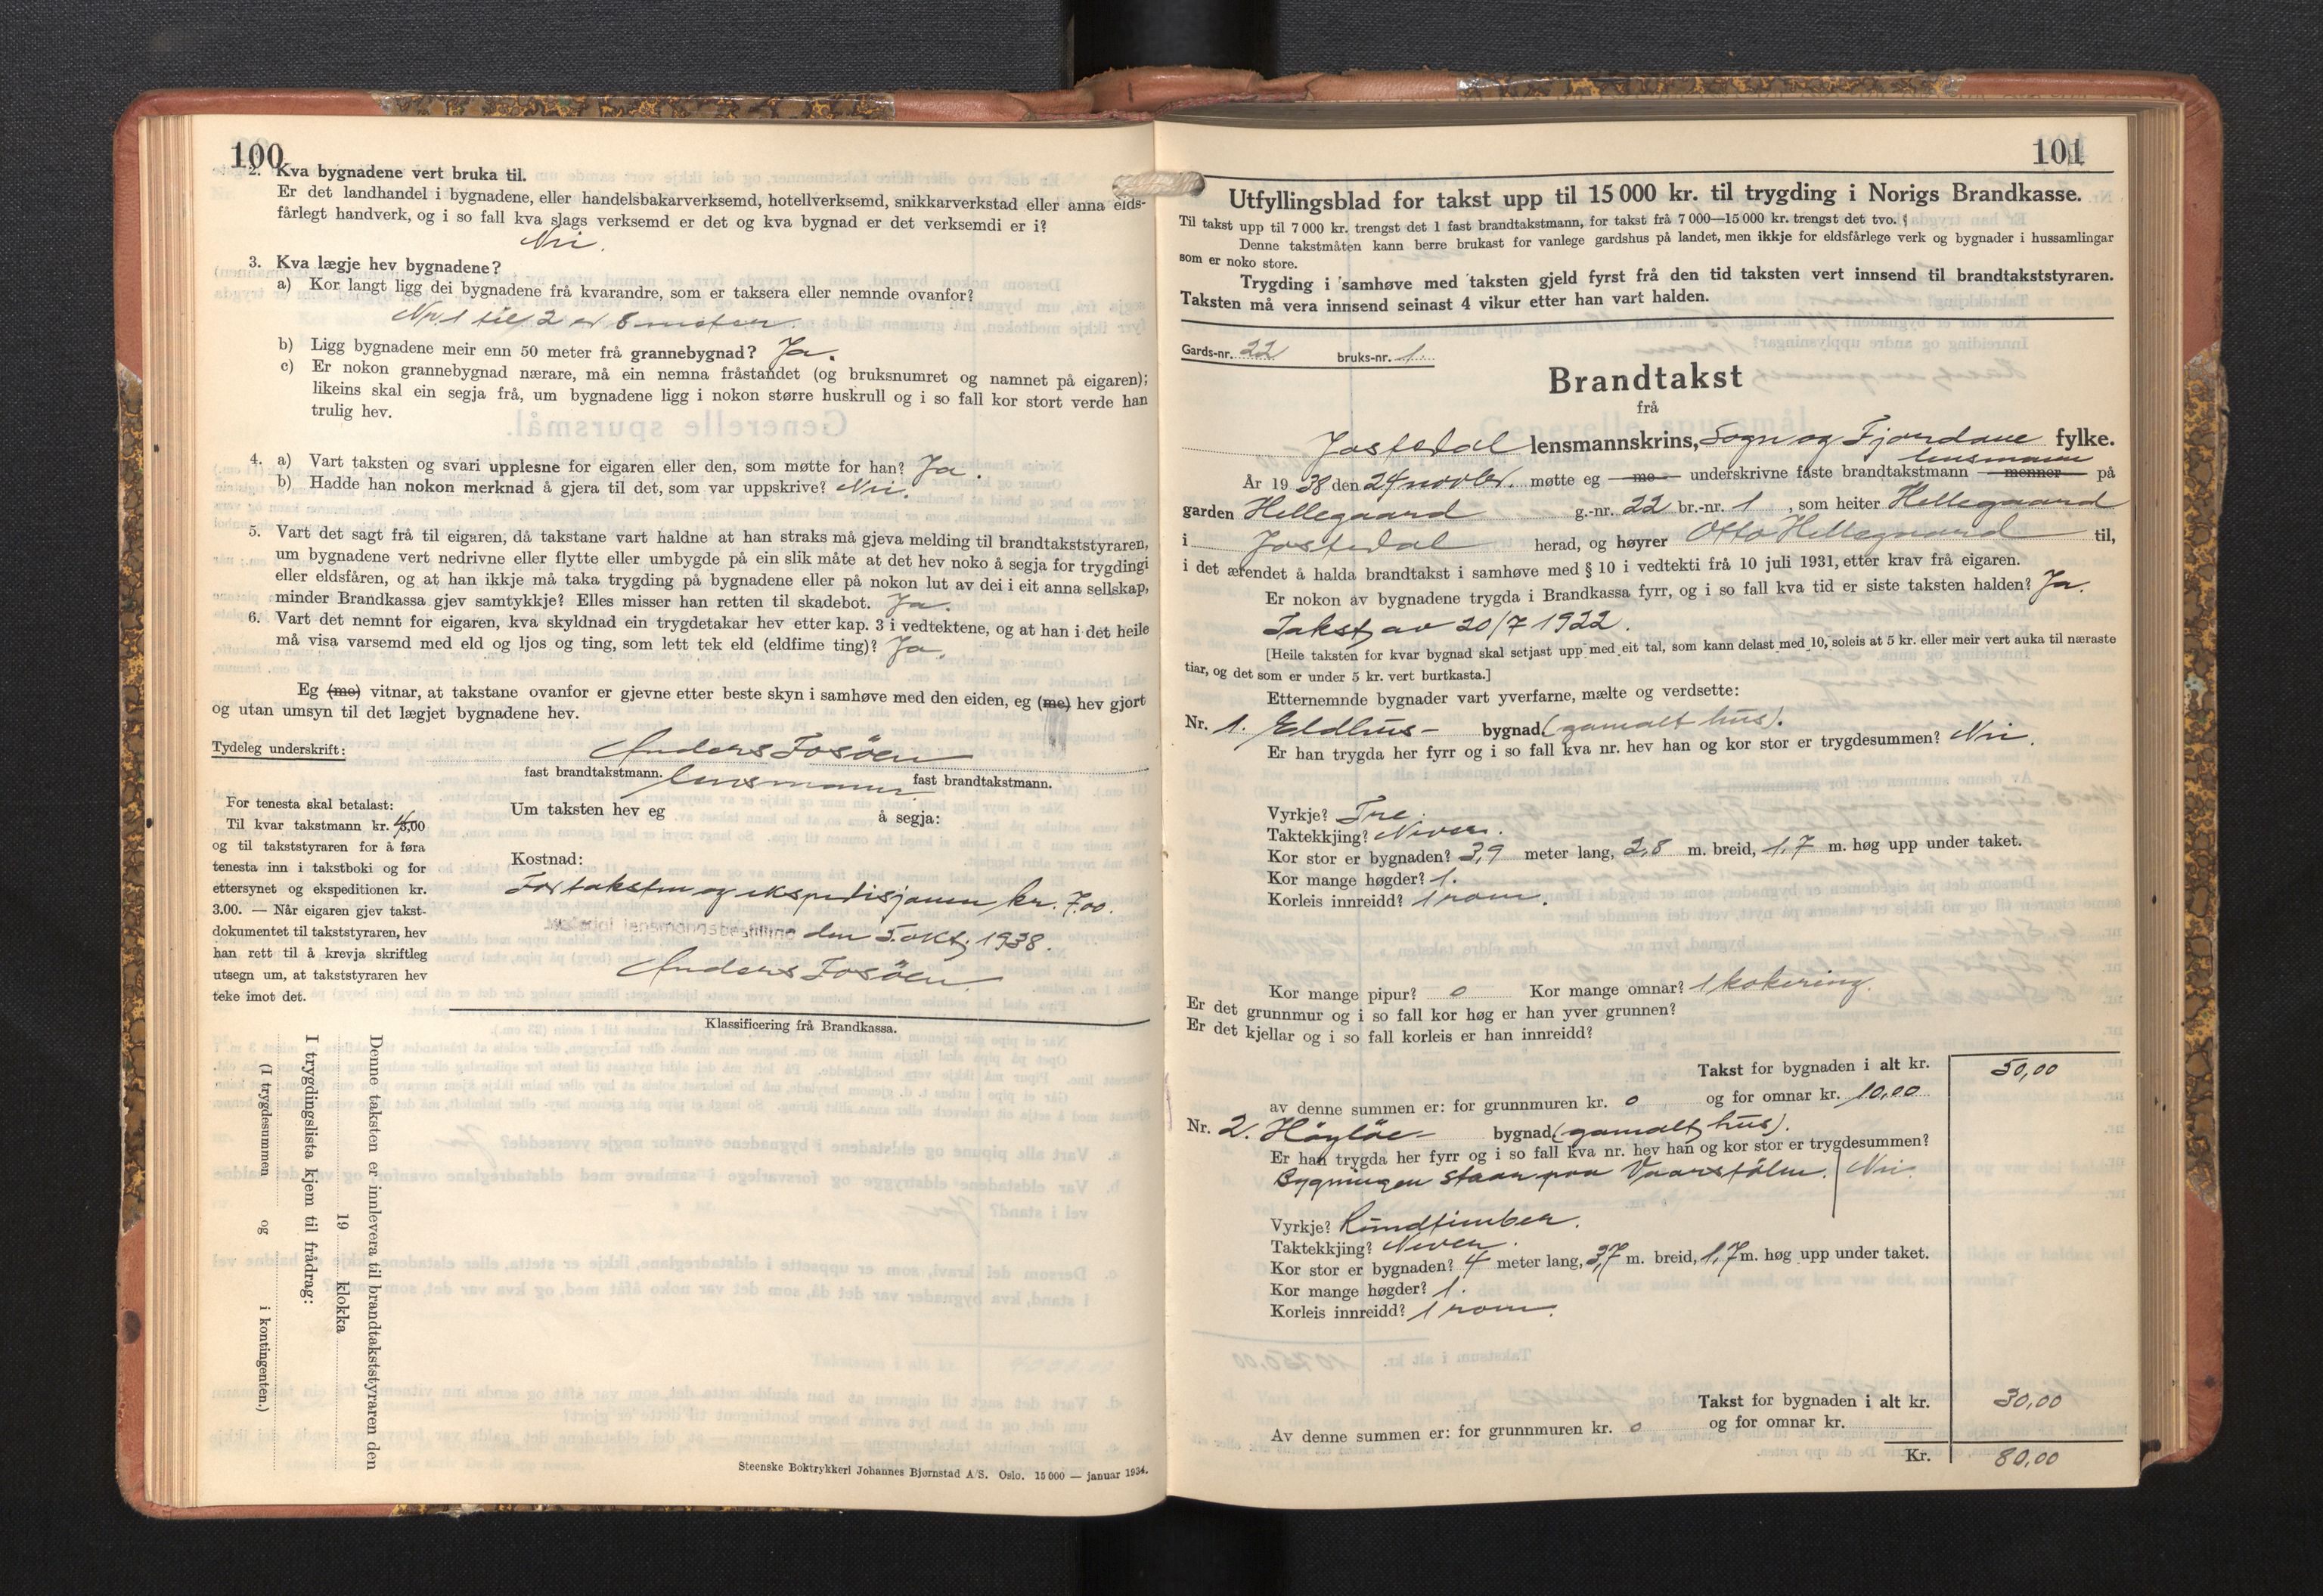 100
2. Kva bygnadene vert bruka til.
Er det landhandel i bygnadene, eller handelsbakarverksemd, hotellverksemd, snikkarverkstad eller anna elds-
fårlegt handverk, og i so fall kva slags verksemd er det og kva bygnad er det verksemdi er i?
Nei.
3. Kva lægje hev bygnadene?
a) Kor langt ligg dei bygnadene frå kvarandre, som er taksera eller nemnde ovanfor?
Nr. 1 til 2 er 8 meter.
b) Ligg bygnadene meir enn 50 meter frå grannebygnad? Ja.
c) Er nokon grannebygnad nærare, må ein nemna fråstandet (og bruksnumret og namnet på eigaren);
likeins skal ein segja frå, um bygnadene ligg i nokon større huskrull og i so fall kor stort verde han
trulig hev.
4. a) Vart taksten og svari upplesne for eigaren eller den, som møtte for han? Ja.
b) Hadde han nokon merknad å gjera til det, som var uppskrive? Nei.
5. Vart det sagt frå til eigaren, då takstane vart haldne at han straks må gjeva melding til brandtakststyraren,
um bygnadene vert nedrivne eller flytte eller umbygde på ein slik måte at det hev noko å segja for trygdingi
eller eldsfåren, og at han ikkje må taka trygding på bygnadene eller på nokon lut av dei i eit anna sellskap,
minder Brandkassa gjev samtykkje? Elles misser han retten til skadebot. Ja.
6. Vart det nemnt for eigaren, kva skyldnad ein trygdetakar hev etter kap. 3 i vedtektene, og at han i det heile
må visa varsemd med eld og ljos og ting, som lett tek eld (eldfime ting)? Ja.
Eg (me) vitnar, at takstane ovanfor er gjevne etter beste skyn i samhøve med den eiden, eg (me) hev gjort
og utan umsyn til det lægjet bygnadene hev.
Tydeleg underskrift: Anders Fosöen
fast brandtakstmann. lensmann fast brandtakstmann.
Um taksten hev eg å segja:
For tenesta skal betalast:
Til kvar takstmann kr. 4/3,00
og til takststyraren for å føra
tenesta inn i takstboki og for
ettersynet og ekspeditionen kr.
3.00. — Når eigaren gjev takst-
dokumentet til takststyraren, hev
han rett til å krevja skriftleg
utsegn um, at takststyraren hev
teke imot det.
Kostnad:
For taksten og ekspedisjonen kr. 7.00.
lensmannsbestilling den 5. okt. 1938.
Anders Fosöen.
Klassificering frå Brandkassa.
Denne taksten er innlevera til brandtakststyraren den
19 klokka
I trygdingslista kjem til frådrag:
(I trygdesummen og i kontingenten.)
Steenske Boktrykkeri Johannes Bjørnstad A/S. Oslo. 15 000 — januar 1934.
101
Utfyllingsblad for takst upp til 15 000 kr. til trygding i Norigs Brandkasse.
Til takst upp til 7 000 kr. trengst det 1 fast brandtakstmann, for takst frå 7 000—15 000 kr. trengst det tvo.
Denne takstmåten kann berre brukast for vanlege gardshus på landet, men ikkje for eldsfårlege verk og bygnader i hussamlingar
som er noko store.
Trygding i samhøve med taksten gjeld fyrst frå den tid taksten vert innsend til brandtakststyraren.
Taksten må vera innsend seinast 4 vikur etter han vart halden.
Gards-nr. 22 bruks-nr. 1.
Brandtakst
frå
Jostedal lensmannskrins, Sogn og Fjordane fylke.
lensmann
År 19 38 den 24 novbr. møtte eg me underskrivne faste brandtakstmann menner på
garden Hellegaard g.-nr. 22 br.-nr. 1, som heiter Hellegaard
i Jostedal herad, og høyrer Otto Hellegaard til,
i det ærendet å halda brandtakst i samhøve med § 10 i vedtekti frå 10 juli 1931, etter krav frå eigaren.
Er nokon av bygnadene trygda i Brandkassa fyrr, og i so fall kva tid er siste taksten halden? Ja.
Takst av 20/7 1922.
[Heile taksten for kvar bygnad skal setjast upp med eit tal, som kann delast med 10, soleis at 5 kr. eller meir vert auka til næraste
tiar, og det som er under 5 kr. vert burtkasta.]
Etternemnde bygnader vart yverfarne, mælte og verdsette:
Nr. 1. Eldhus- bygnad (gamalt hus).
Er han trygda her fyrr og i so fall kva nr. hev han og kor stor er trygdesummen? Nei.
Vyrkje? Tre.
Taktekkjing? Never.
Kor stor er bygnaden? 3,9 meter lang, 2,8 m. breid, 1,7 m. høg upp under taket.
Kor mange høgder? 1.
Korleis innreidd? 1 rom.
Kor mange pipur? 0 Kor mange omnar? 1 kokering.
Er det grunnmur og i so fall kor høg er han yver grunnen?
Er det kjellar og i so fall korleis er han innreidd?
Takst for bygnaden i alt kr. 50,00
av denne summen er: for grunnmuren kr. 0 og for omnar kr. 10,00
Nr. 2. Höyløe- bygnad (gamalt hus).
Er han trygda her fyrr og i so fall kva nr. hev han og kor stor er trygdesummen?
Bygningen staar paa Vaarstölen. Nei.
Vyrkje? Rundtimber.
Taktekkjing? Never.
Kor stor er bygnaden? 4 meter lang, 3,7 m. breid, 1,7 m. høg upp under taket.
Kor mange høgder? 1.
Korleis innreidd? 1 rom.
Takst for bygnaden i alt kr. 30,00
Av denne summen er: for grunnmuren kr. 0 og for omnar kr.
Kr. 80,00